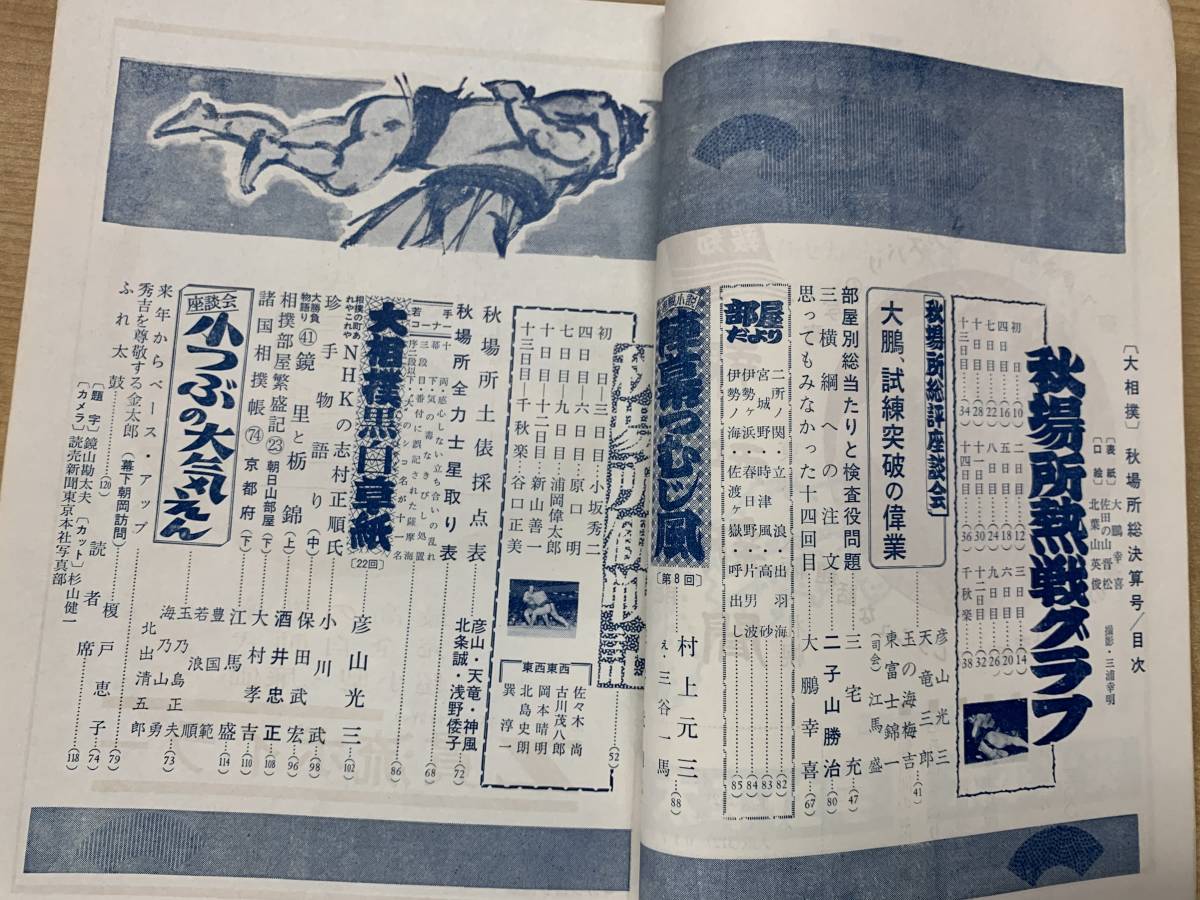 〔大相撲〕秋場所総決算号／目次
〔表紙〕大鵬幸喜
佐田の山晋松
〔口絵〕北葉山英俊
撮影・三浦幸明
秋場所熱戦グラフ
初日(10)
二日(12)
三日(14)
四日(16)
五日(18)
六日(20)
七日(22)
八日(24)
九日(26)
十日(28)
十一日(32)
十三日(34)
十四日(36)
千秋楽(38)
秋場所総評座談会
大鵬、試練突破の偉業
彦山光三
天竜三郎
玉の海梅吉
東富士錦一
(司会)江馬盛
(41)
部屋別総当たりと検査役問題 三宅充(47)
三横綱への注文 二子山勝治(80)
思ってもみなかった十四回目 大鵬幸喜(67)
部屋だより
二所ノ関・立浪・出羽海(82)
宮城野・時津風・高砂(83)
伊勢ヶ浜・春日野・片男波(84)
伊勢ノ海・佐渡ヶ嶽・呼出し(85)
つむじ風
〔第8回〕
村上元三
え・三谷一馬
(88)
初日―三日目 小坂秀二
四日目―六日目 原口明
七日目―九日目 浦岡偉太郎
十日目―十二日目 新山善一
十三日目―千秋楽 谷口正美
(52)
東西東西
佐々木尚
古川茂八郎
岡本晴明
北島史朗
巽淳一
秋場所土俵採点表 彦山・天竜・神風
北条誠・浅野倭子(72)
秋場所全力士星取り表(68)
若手コーナー
十両・感心しない立ち合いの乱れ
幕下・気の毒なきびしい処置
三段目・番付に誤記された薩摩海
序二段以下・下のシコ名が十一名
(86)
大相撲黒白草紙
〔22回〕
彦山光三(102)
相撲の町あれやこれや NHKの志村正順氏 小川武(98)
珍手物語り(中) 保田武宏(96)
大勝負物語り㊶鏡里と栃錦(上) 酒井忠正(108)
相撲部屋繁盛記㉓朝日山部屋(下) 大村孝吉(110)
諸国相撲帳㊆京都府(下) 江馬盛(114)
座談会
小つぶの大気えん
豊国範
若浪順
玉乃島正夫
海乃山勇
(73)
来年からペース・アップ 北出清五郎(79)
秀吉を尊敬する金太郎(幕下朝岡訪問) 榎戸恵子(74)
ふれ太鼓(120)
読者席(118)
〔題字〕鏡山勘太夫 〔カット〕杉山健一
〔カメラ〕読売新聞東京本社写真部